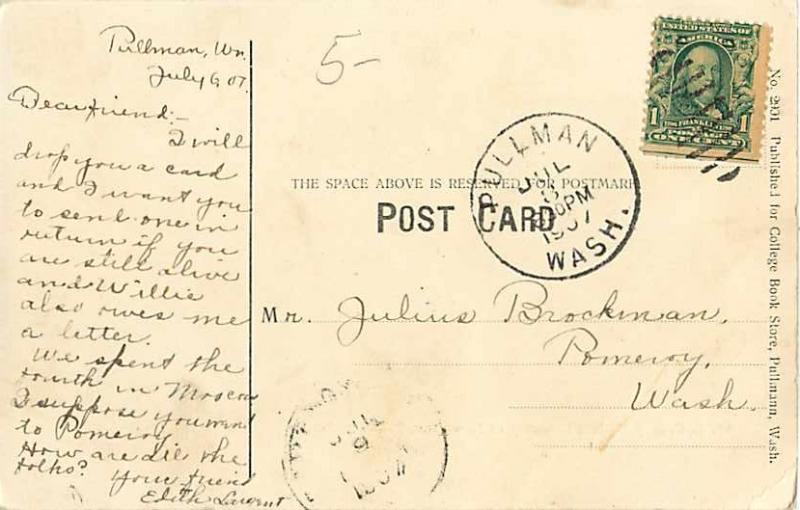 Pullman, Wn.
July 6, 07.
Dear friend:-
I will
drop you a card
and I want you
to send one in
return if you
are still alive
and Willie
also owes me
a letter.
We spent the
fourth in Moscow
I suppose you went
to Pomeroy
How are all the
folks?
Your friend
Edith
5-
UNITED STATES OF
AMERICA
1 1
FRANKLIN
POSTAGE
ONE CENT
PULLMAN
JUL
8
PM
1907
WASH.
THE SPACE ABOVE IS RESERVED FOR POSTMARK
POST CARD
Mr. Julius Brockman,
Pomeroy,
Wash.
JUL
9
1907
No. 2931 Published for College Book Store, Pullmann, Wash.